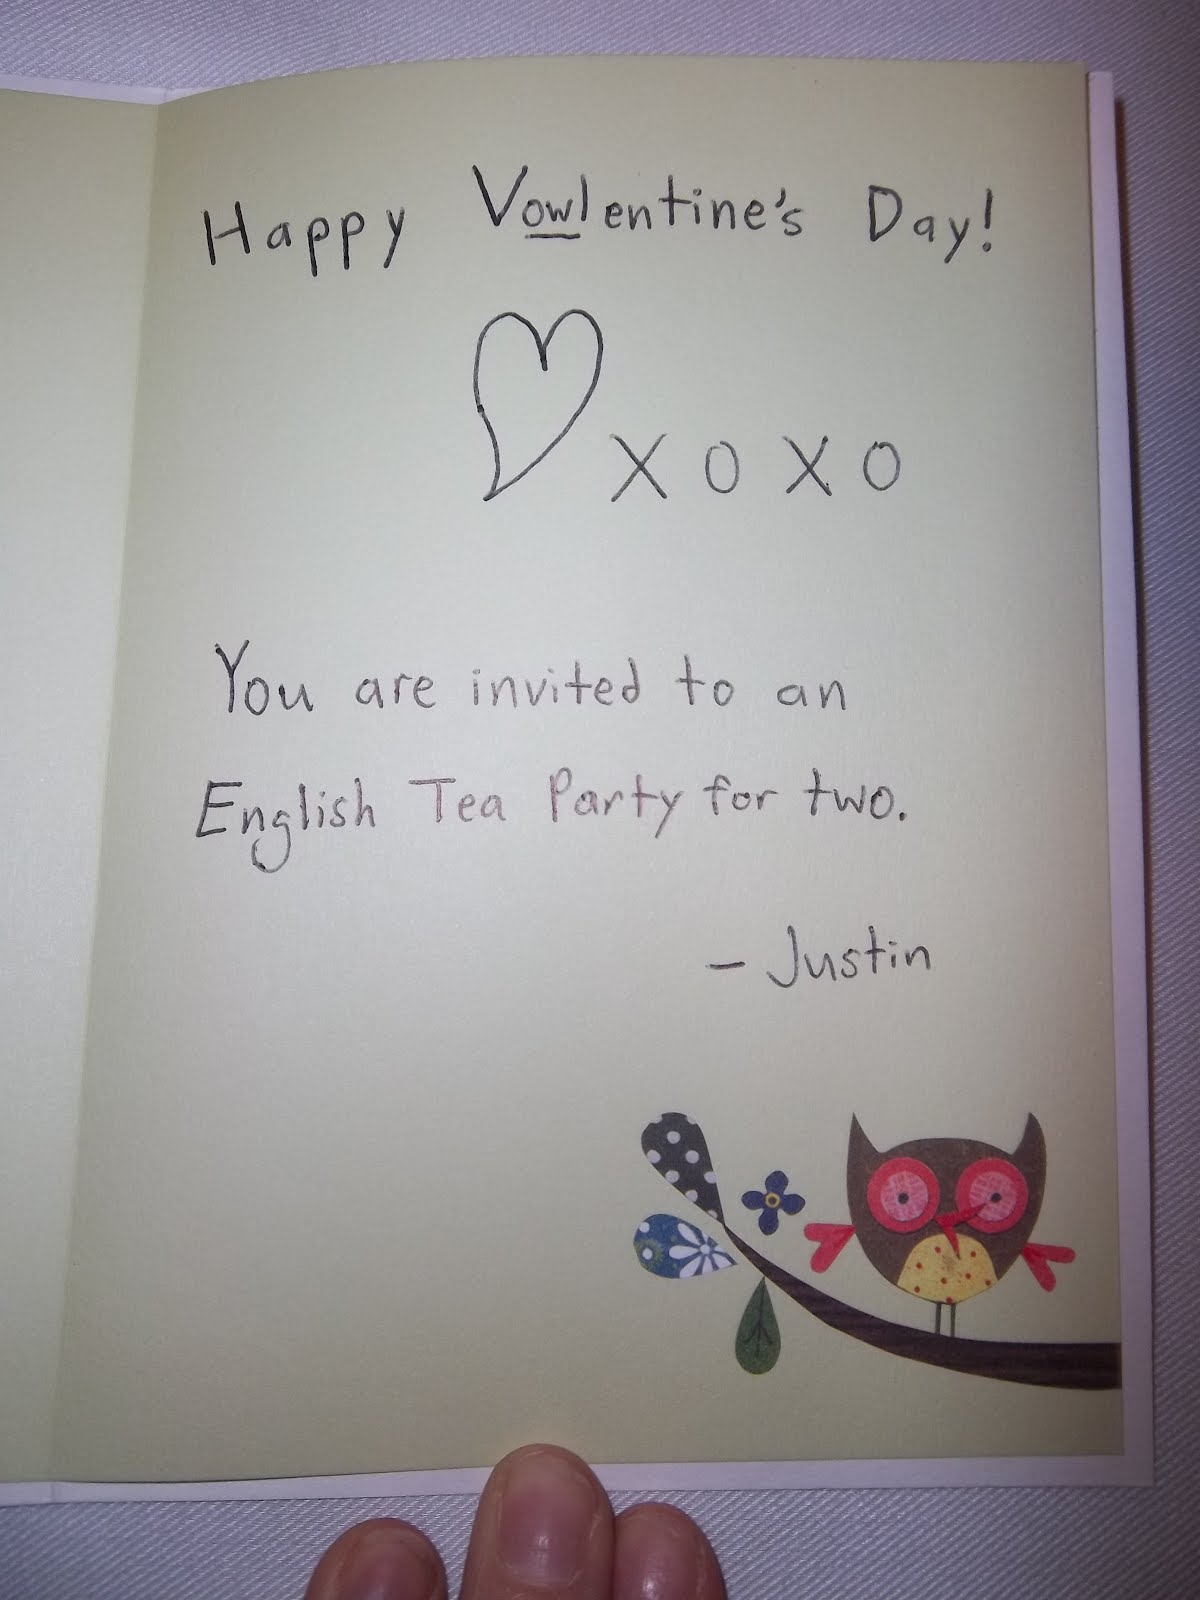 Happy Vowlentine's Day!
XOXO
You are invited to an
English Tea Party for two.
- Justin